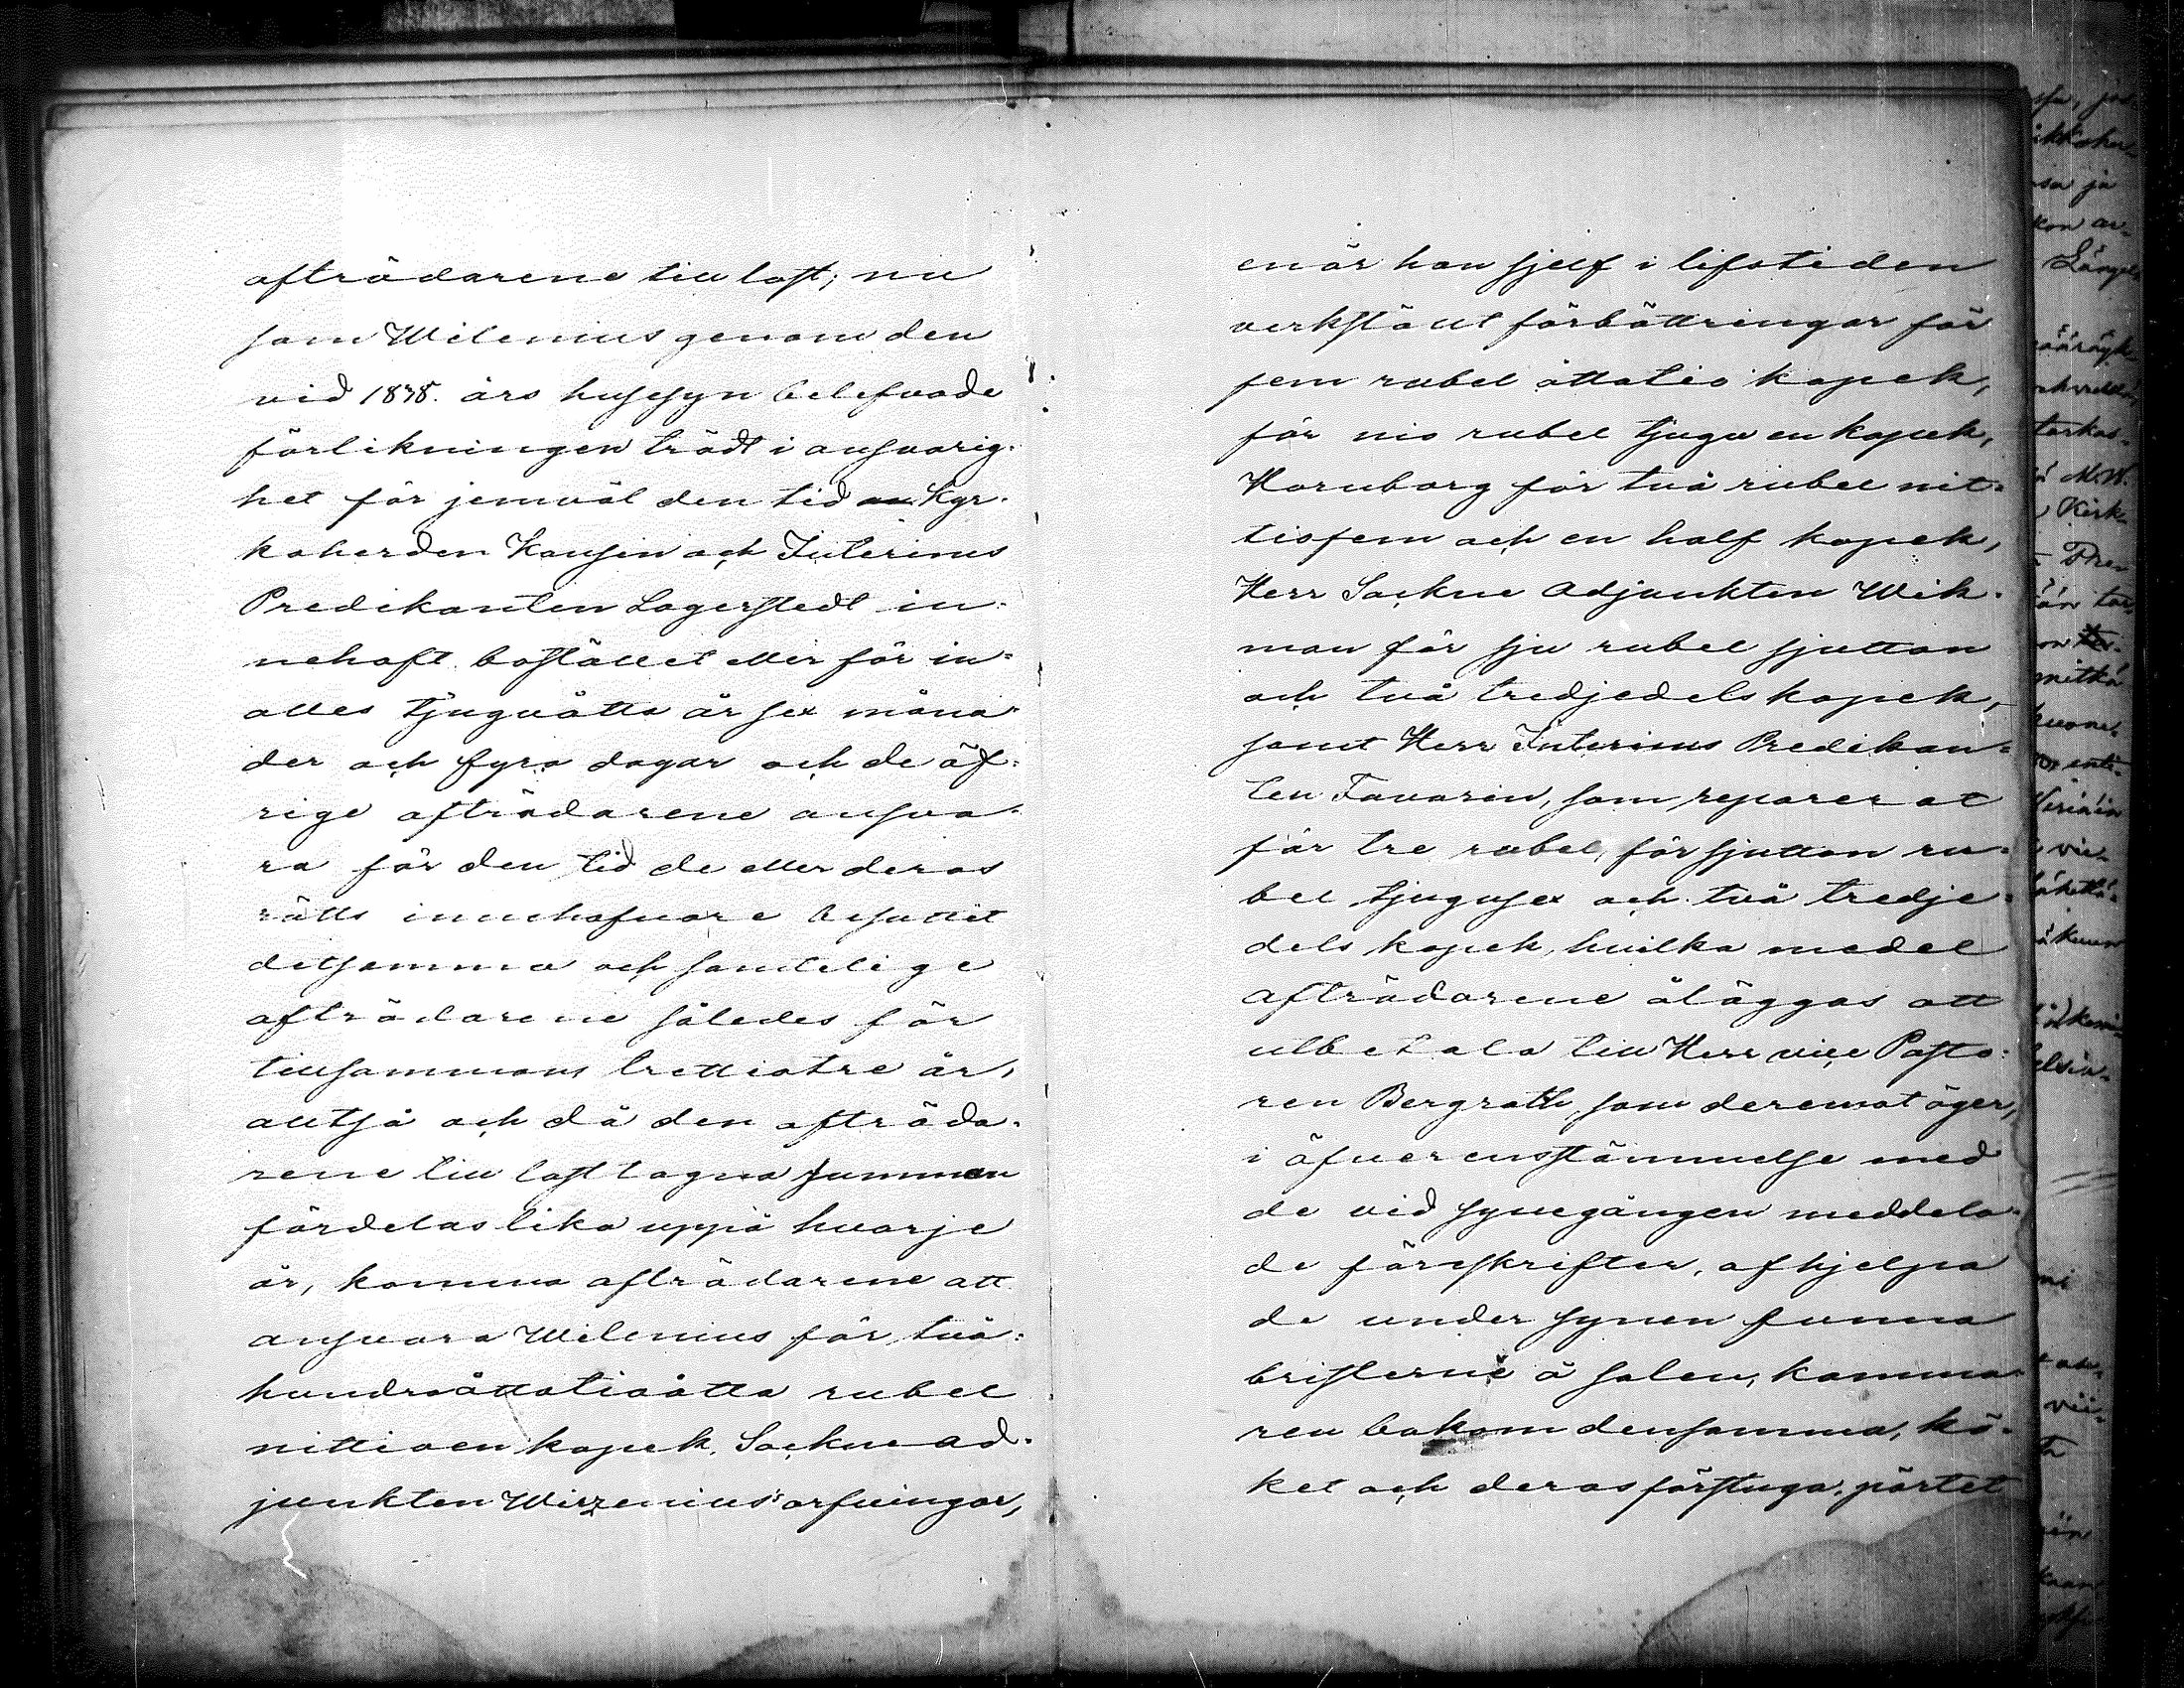 afträdarene till last; nu
som Wilenius genom den
vid 1838. års hussyn belefvade
förlikningen trädt i ansvarig-
het för jemväl den tid Kyr-
koherden Hausen och Interims
Predikanten Lagerstedt in-
nehaft bostället eller för in-
alles tjuguåtta år sex måna-
der och fyra dagar och de öf-
rige afträdarene ansva-
ra för den tid de eller deras
rätts innehafvare besuttit
detsamma och samtelige
afträdarene således för
tillsammans trettiotre år,
alltså och då den afträda-
rene till last tagna summan
fördelas lika uppå hvarje
år, komma afträdarene att
ansvara Wilenius för två-
hundraåttatioåtta rubel
nittioen kopek, Sockne ad-
junkten Wirzenius' arfvingar,
enär han sjelf i lifstiden
verkstält förbättringar för
fem rubel åttatio kopek,
för nio rubel tjugu en kopek,
Hornborg för två rubel nit-
tiofem och en half kopek,
Herr Sockne adjunkten Wik-
man för sju rubel sjutton
och två tredjedels kopek,
samt Herr Interims Predikan-
ten Favorin, som reparerat
för tre rubel, för sjutton ru-
bel tjugusex och två tredje-
dels kopek, hvilka medel
afträdarene åläggas att
utbetala till Herr vice Pasto-
ren Bergroth, som deremot äger,
i öfverensstämmelse med
de vid synegången meddela-
de föreskrifter, afhjelpa
de under synen funna
bristerne å salen, kamma-
ren bakom densamma, kö-
ket och deras förstuga, pörtet